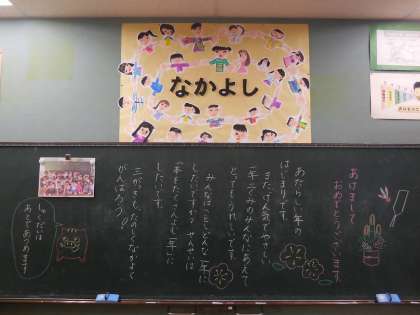 なかよし
あけまして
おめでとうございます。
あたらしい年の
はじまりです。
また、げん気でやさしい
一年二くみのみんなにあえて
とってもうれしいです。
みんなは、ことしどんな一年に
したいですか？せんせいは
「本をたくさんよむ」一年に
したいです。
三がっきも、たのしくなかよく
がんばろう！！
しゅくだいは
あとであつめます